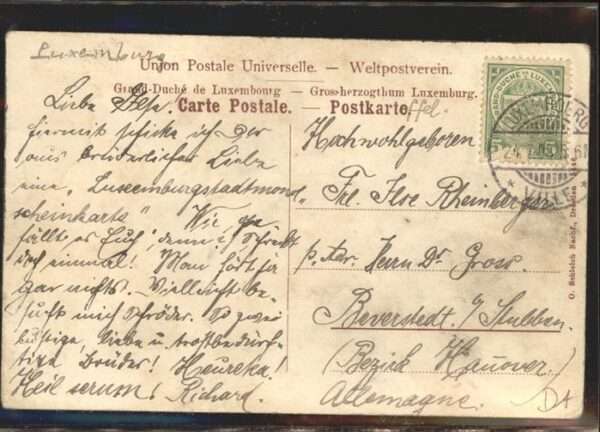 Luxemburg
Union Postale Universelle. – Weltpostverein.
Grand-Duché de Luxembourg – Grossherzogthum Luxemburg.
Carte Postale. – Postkarte
Liebe
hiermit schicke ich Dir
aus brüderlicher Liebe
eine „Luxemburgstadtmond-
scheinkarte" Wie ge
fällt es Euch, denn? Schreibt
doch einmal! Man hört ja
gar nichts. Vielleicht be-
sucht mich Schröder. So zwei
lustige, liebe u. trostbedürf-
tige, Brüder! Heureka!
Heil Richard.
Hochwohlgeboren
Frl. Ilse Rheinberger
p. Adr. Herrn Dr. Gross.
Beverstedt. b/ Stubben.
(Bezirk Hanover)
Allemagne.
GRAND-DUCHÉ DE LUXEMBOURG
5 5
LUXEMBOURG
VILLE
O. Schleich Nachf., Dresden